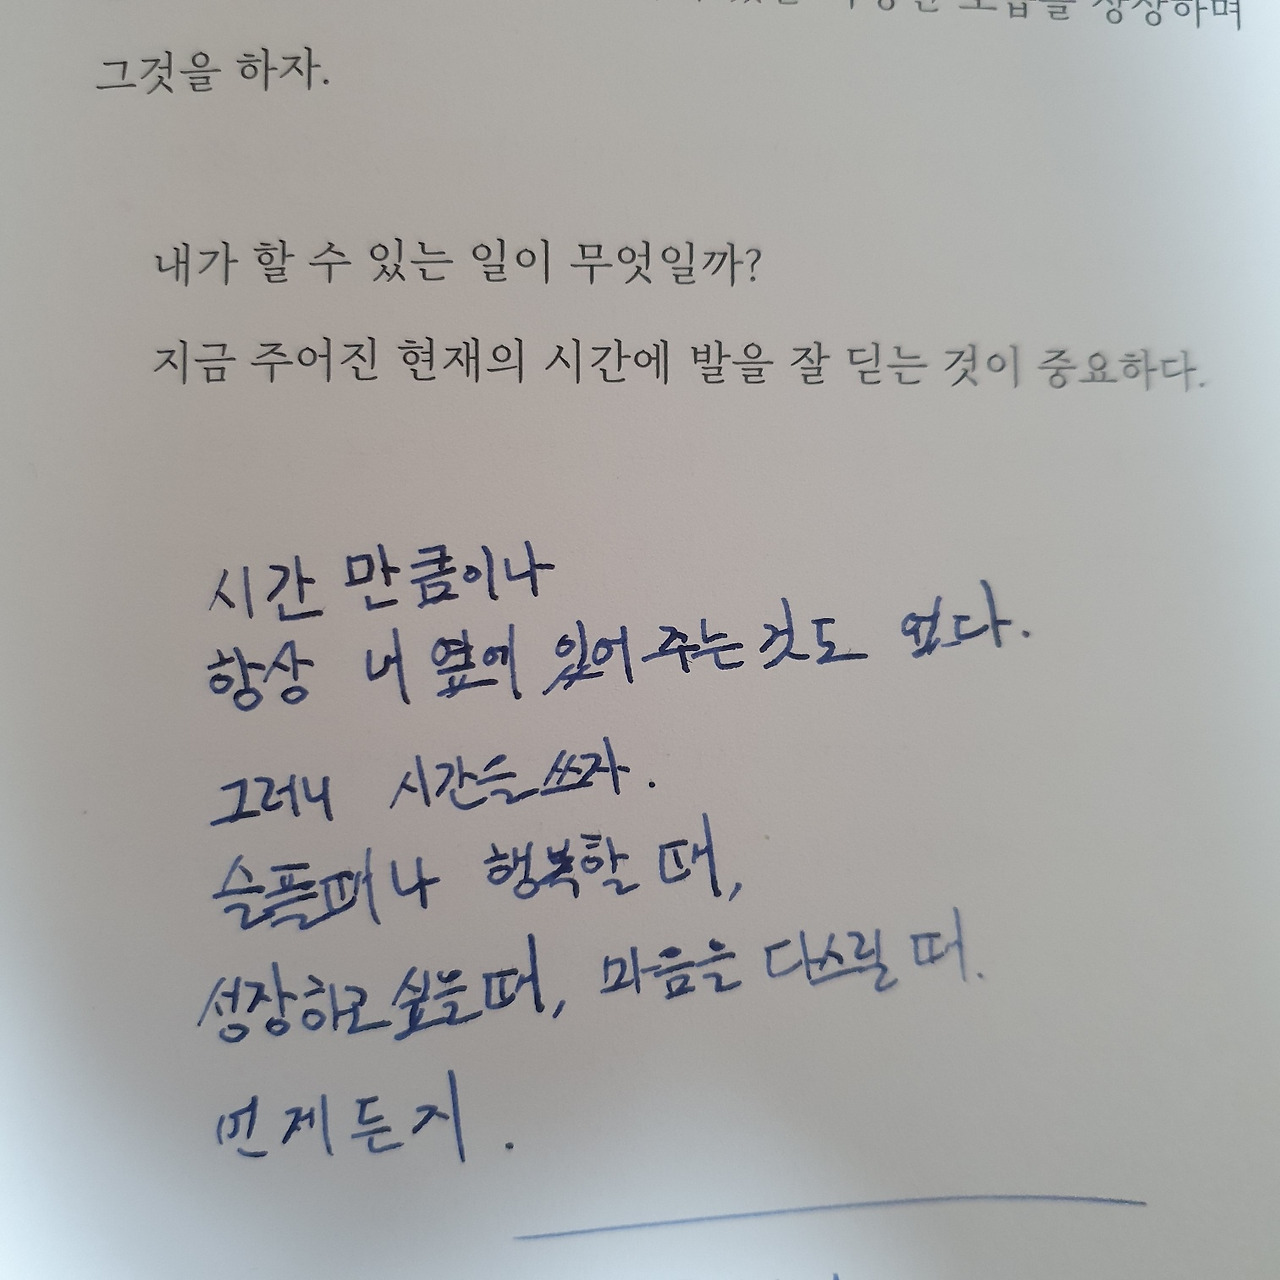 모습을 상상하며
그것을 하자.
내가 할 수 있는 일이 무엇일까?
지금 주어진 현재의 시간에 발을 잘 딛는 것이 중요하다.
시간 만큼이나
항상 내 옆에 있어 주는것도 없다.
그러니 시간을 쓰자.
슬플때나 행복할 때,
성장하고 싶을때, 마음을 다스릴 때.
언제든지.